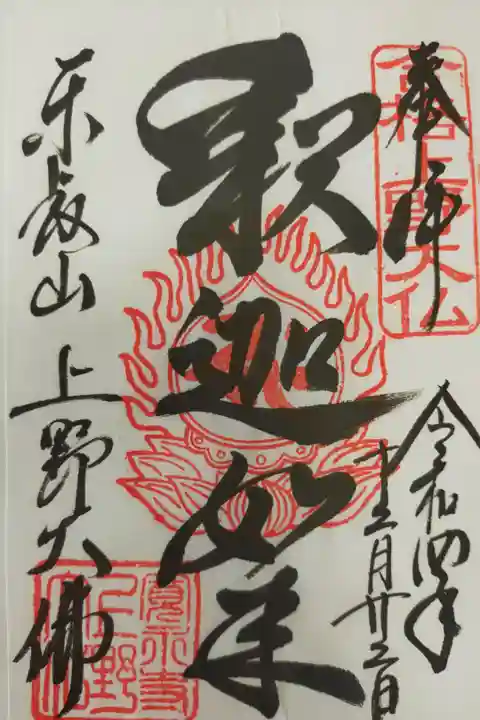 奉拝
合格上野大仏
令和四年
十二月
釈迦如来
東叡山 上野大佛
寛永寺
上野